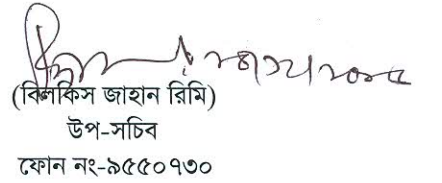 (বিলকিস জাহান রিমি)
উপ-সচিব
ফোন নং-৯৫৫০৭৩০